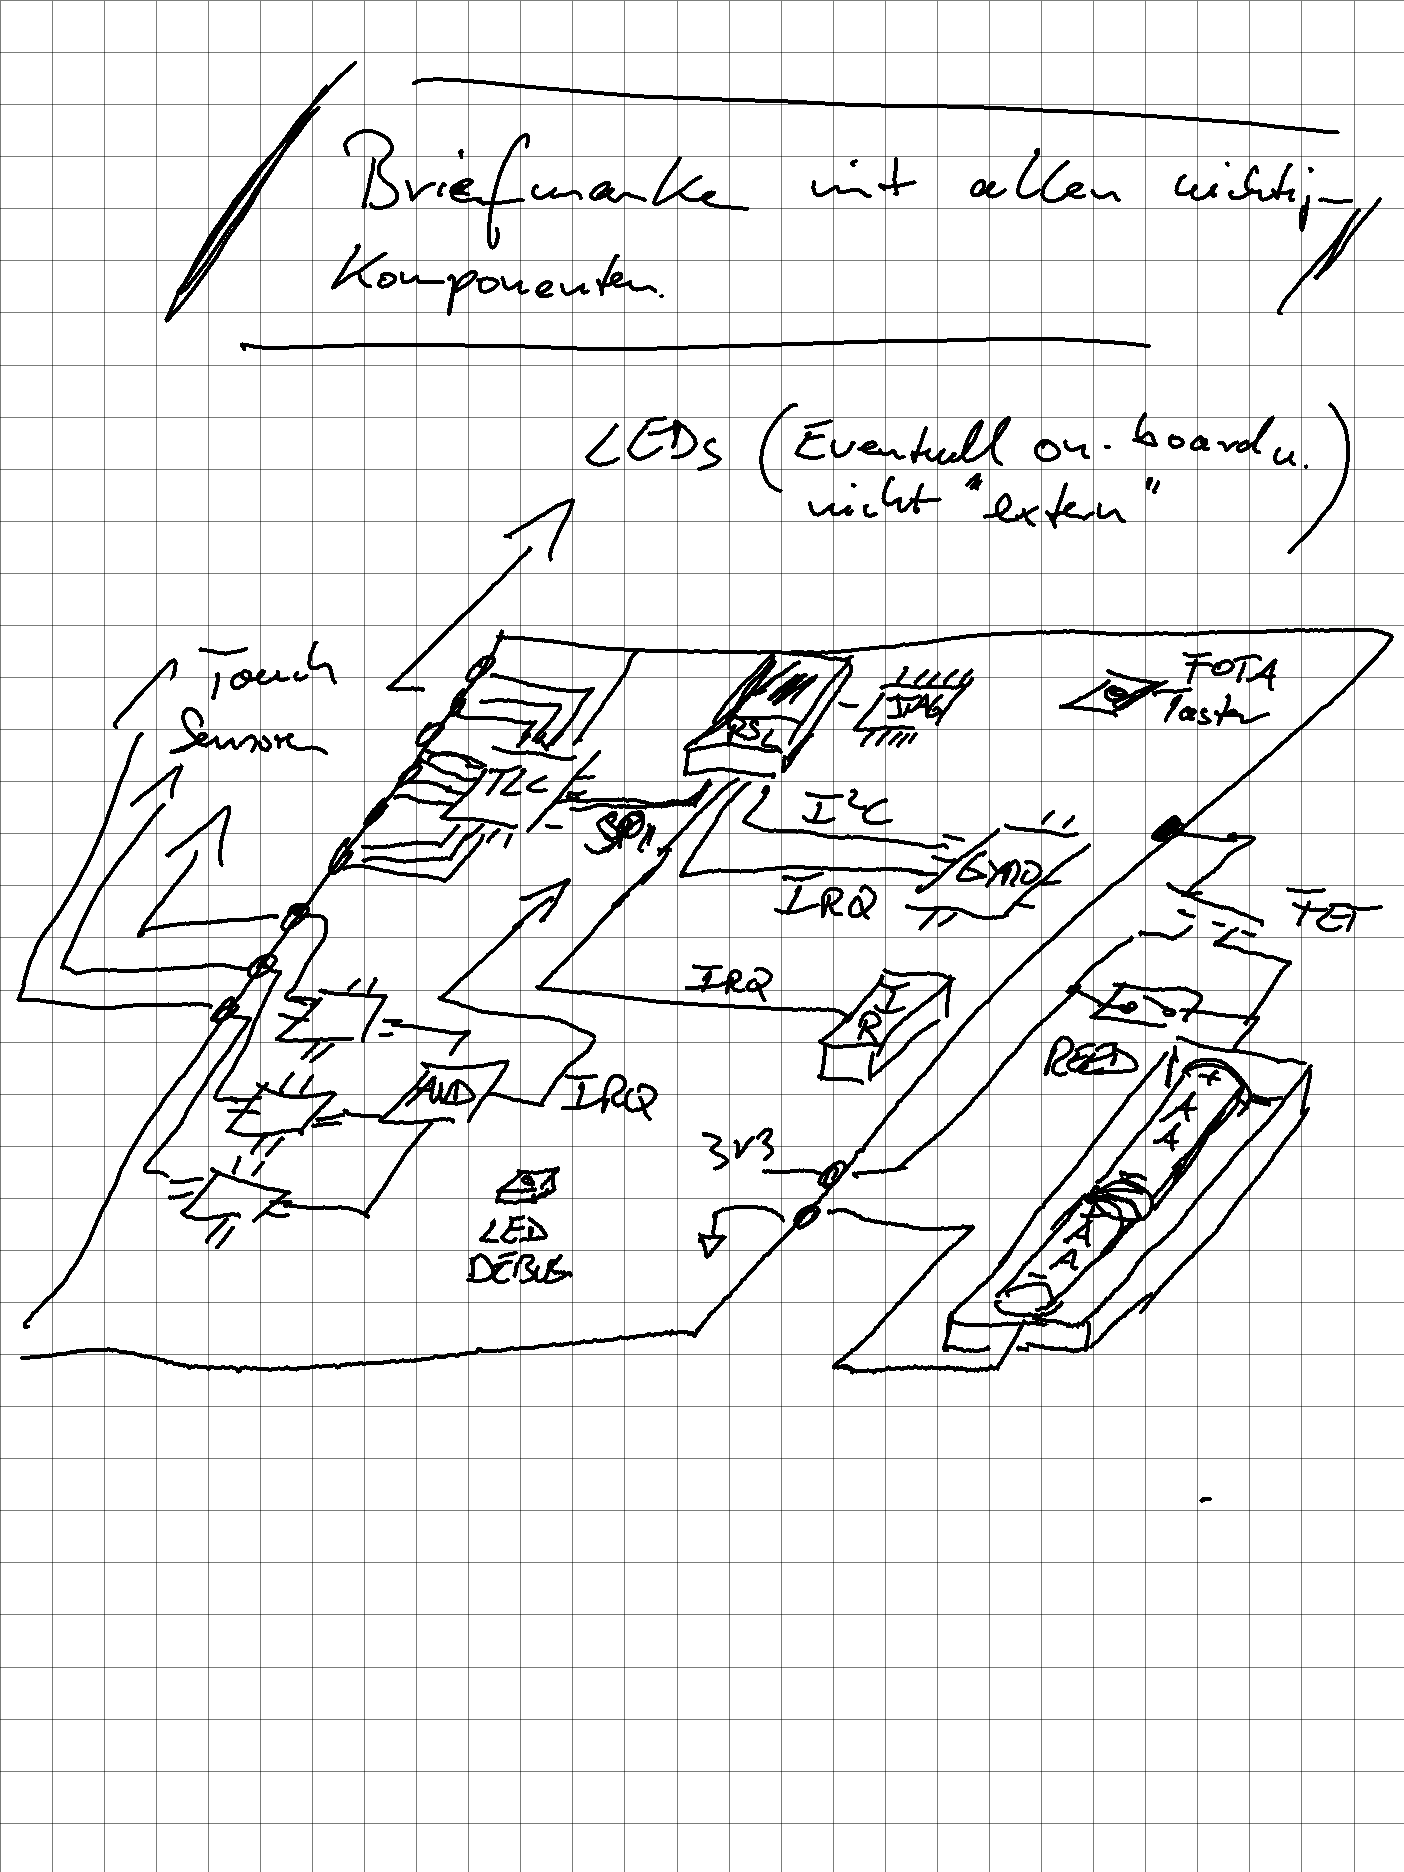 Briefmarke mit allen wichtig
Komponenten.
LEDs (Eventuell on-board u.
nicht "extern")
Touch
Sensoren
TLC
SPI
RSL
JTAG
FOTA
Taster
I²C
GYRO
IRQ
FET
IRQ
IR
REED
AND
IRQ
3V3
LED
DEBUG
+
A
A
+
A
A
-